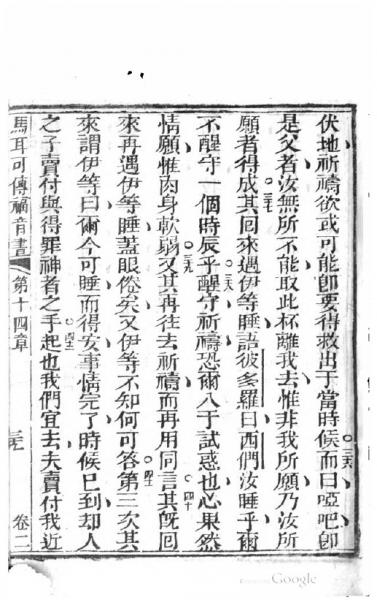 伏地祈禱欲或可能卽要得救出于當時候而曰啞吧卽
三六
是父者汝無所不能取此杯離我去惟非我所願乃汝所
願者得成其回來遇伊等睡語彼多羅曰西們汝睡乎爾
三七
不醒守一個時辰乎醒守祈禱恐爾入于試惑也心果然
三八
情願惟肉身軟弱又其再往去祈禱而再用同言其旣回
三九 四十
來再遇伊等睡蓋眼倦矣又伊等不知何可答第三次其
四一
來謂伊等曰爾今可睡而得安事情完了時候已到却人
之子賣付與得罪神者之手起也我們宜去夫賣付我近
四二
馬耳可傳福音書 第十四章 卷二
Google